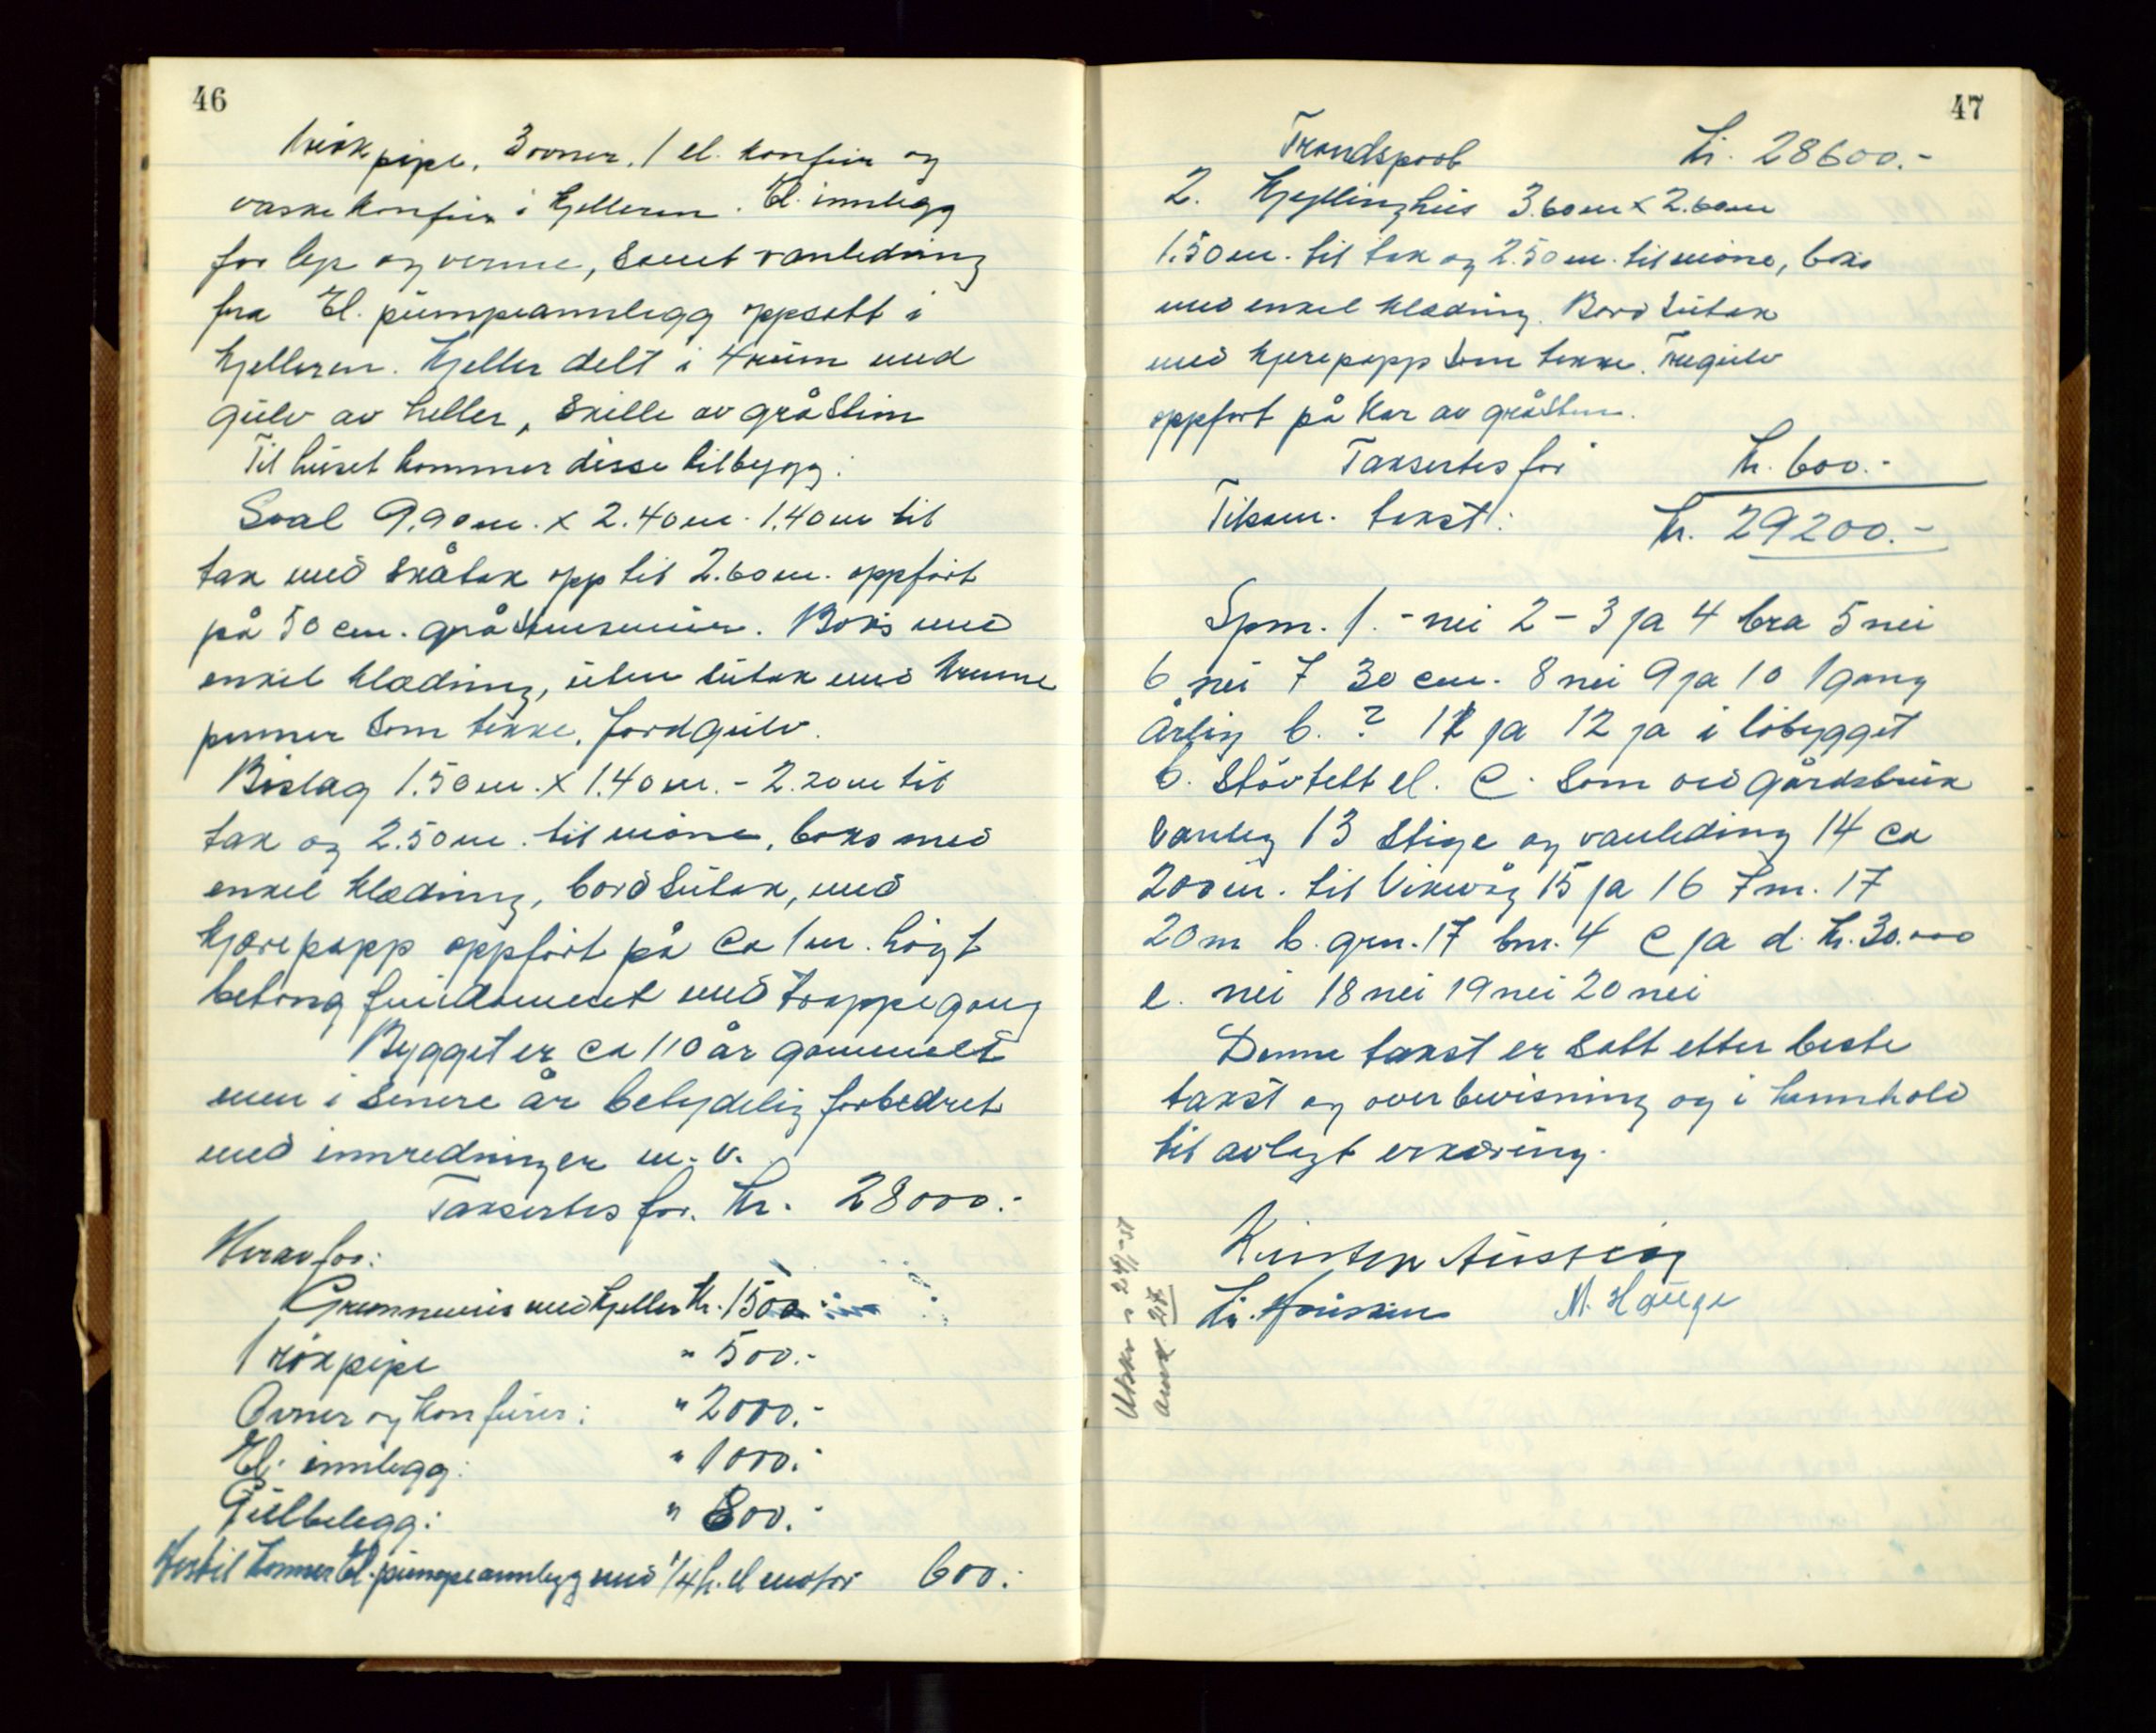 46
1 rökpipe, 3 ovner, 1 el. komfur og
vaskekomfur i kjelleren. El. innlegg
for lys og verme, samt vanledning
fra El. pumpeannlegg oppsatt i
kjelleren. Kjeller delt i 4 rum med
gulv av heller, skille av gråstein
Til huset kommer disse tilbygg:
Sval 9,90 m. x 2.40 m. 1.40 m til
tak med skråtak opp til 2.60 m. oppfört
på 50 cm. gråsteinsmur. Boks med
enkel klædning, uten sutak med krumme
panner som tekke. Jordgulv.
Bislag 1.50 m. x 1.40 m. - 2.20 m til
tak og 2.50 m. til möne, boks med
enkel klædning, bord sutak, med
kjærepapp oppfört på ca 1 m. högt
betong fundament med trappegang
Bygget er ca 110 år gammelt
men i senere år betydelig forbedret
med innredninger m. v.
Taksertes for. Kr. 28000.-
Herav for:
Grunnmur med kjeller Kr. 1500
1 rökpipe " 500.-
Ovner og komfurer: " 2000.-
El. innlegg: " 1000.-
Gulbelegg: " 800.-
Hertil kommer El. pumpeannlegg med 1/4 h. el motor 600.-
47
Trandsport Kr. 28600.-
2. Kyllinghus 3.60 m x 2.60 m
1.50 m. til tak og 2.50 m. til möne, boks
med enkel klædning. Bord sutak
med kjerepapp som tekke. Tregulv
oppfört på kar av gråstein.
Taksertes for Kr. 600.-
Tilsam. takst: Kr. 29200.-
Spm. 1. - nei 2 - 3 ja 4 bra 5 nei
6 nei 7 30 cm. 8 nei 9 ja 10 1 gang
årlig b. ? 11 ja 12 ja i löbygget
b. Stövtett el. C. som ved gårdsbruk
vanleg 13 Stige og vanleding 14 ca
200 m. til Vikevåg 15 ja 16 7 m. 17
20 m b. grn. 17 bnr. 4 c ja d. Kr. 30.000
e. nei 18 nei 19 nei 20 nei
Denne takst er satt etter beste
takst og overbevisning og i hennhold
til avlagt erkæring.
M. Hauge